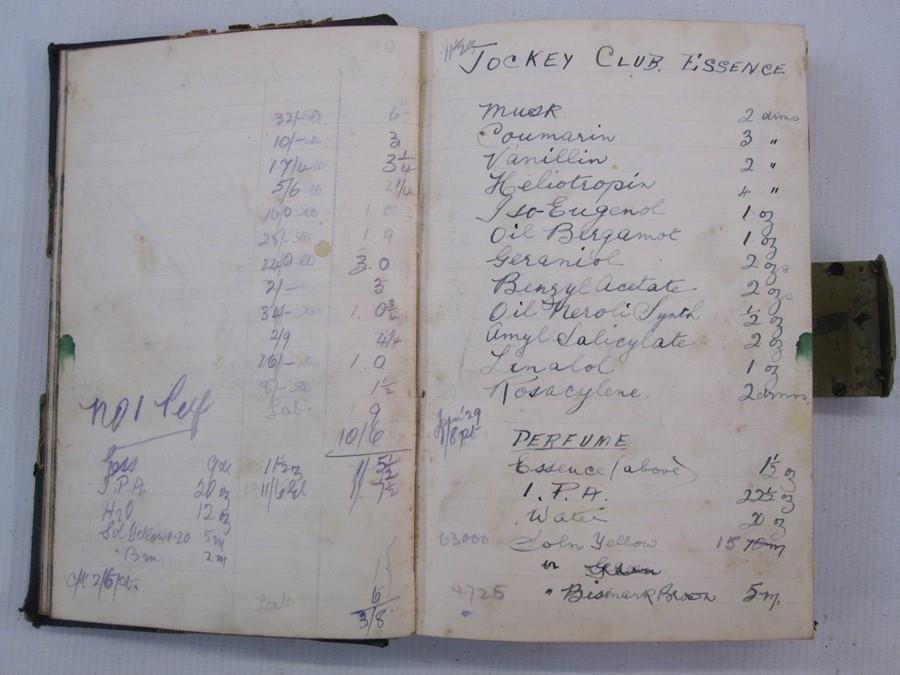 32/-
6
10/-
3
17/4
3 1/4
5/6
2 1/4
160
1 0
1 9
240
3.0
2/-
3
34/-
1. 0 3/4
2/9
16/-
1. 0
8/-
1 1/2
No 1
Lab.
9
10/6
Ess
11 1/2 oz
11 5 1/2
I.P.A
20 oz
7 1/2
H2O
12 oz
Sol Yellow 1-20 5m
" Brn 2m
2/6 pt.
6
3/8
11 1/2 oz
JOCKEY CLUB. ESSENCE
Musk 2 drms
Coumarin 3 "
Vanillin 2 "
Heliotropin 4 "
Iso-Eugenol 1 oz
Oil Bergamot 1 oz
Geraniol 2 ozs
Benzyl Acetate 2 ozs
Oil Neroli Synth 1/2 oz
Amyl Salicylate 2 oz
Linalol 1 oz
Rosacylene. 2 drms.
Jan '29
/8 pt
PERFUME
Essence (above) 1 1/2 oz
I. P.A. 22 1/2 oz
Water 20 oz
63000 Soln Yellow 15 m
4725 " Bismark Brown 5 m.